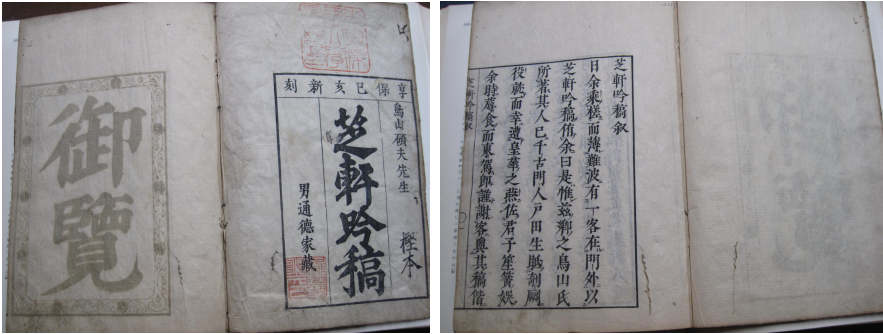 享保已亥新刻
鳥山碩夫先生
芝軒吟稿
男通德家藏
樫本
御覽
芝軒吟稿叙
日余乘槎而薄難波有一客在門外以
芝軒吟稿侑余曰是惟玆鄉之鳥山氏
所著其人已千古門人戸田生剞劂
役就而幸遭皇華之燕佐君子笙簧娛
余時蓐食而東駕卽謹謝客輿其稿偕
芝軒吟稿叙